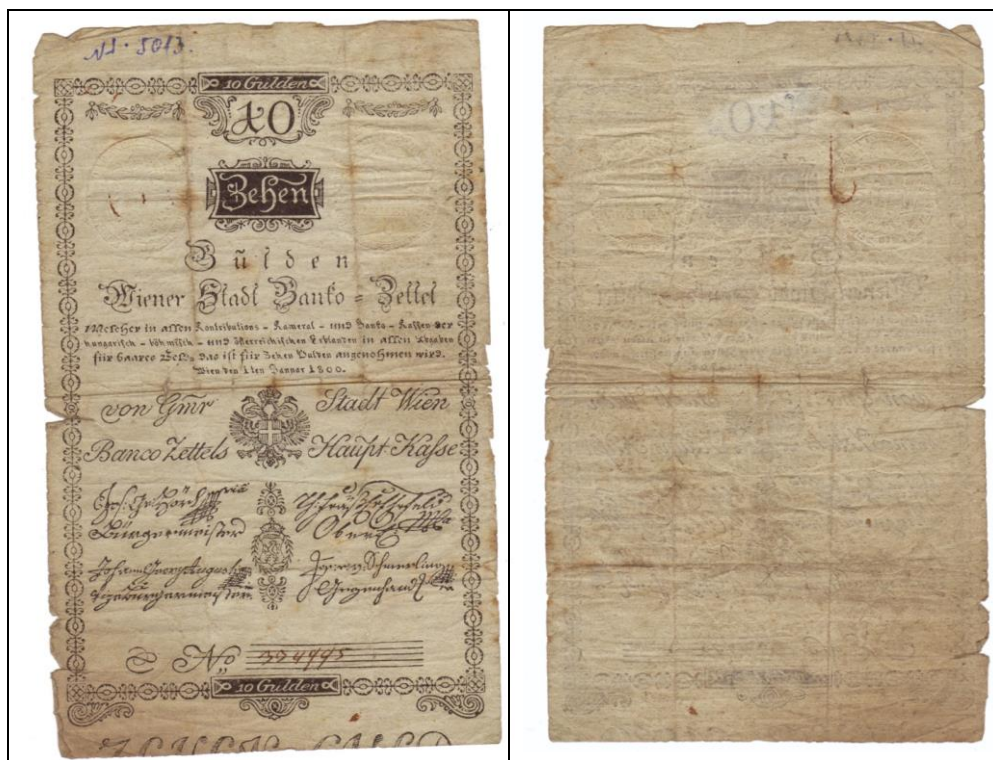 NI. 5013.
10 Gulden
10
Zehen
Gulden
Wiener Stadt Banko = Zettel
Welcher in allen Kontributions - Kameral - und Banko - Kassen der
hungarisch - böhmisch - und österreichischen Erblanden in allen Abgaben
für baares Geld, das ist für Zehen Gulden angenohmen wird.
Wien den 1ten Januar 1800.
von Gmr Stadt Wien
Banco Zettels Haupt Kasse
Bürgermeister
Johann Georg August
Vizebürgermeister Gegenhand
No 334995
10 Gulden